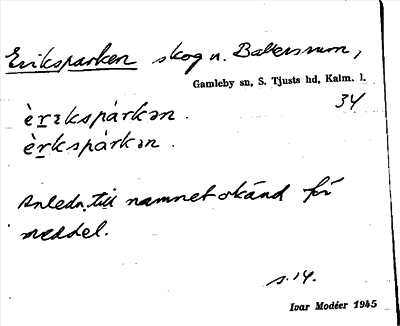 Eriksparken skog u. Balkersrum,
Gamleby sn, S. Tjusts hd, Kalm. l.
34
èrıkspàrkən.
èrkspàrkən.
Anledn. till namnet okänd för
meddel.
s. 14.
Ivar Modéer 1945